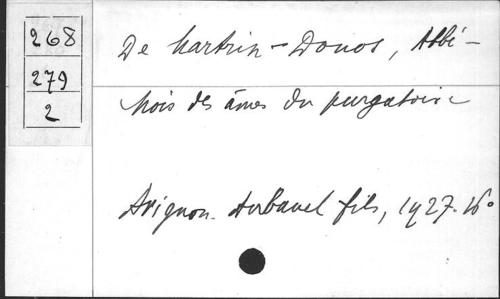 268
279
2
De Martrin-Donos, Abbé -
Mois des âmes du purgatoire
Avignon. Aubanel fils, 1927. 16°